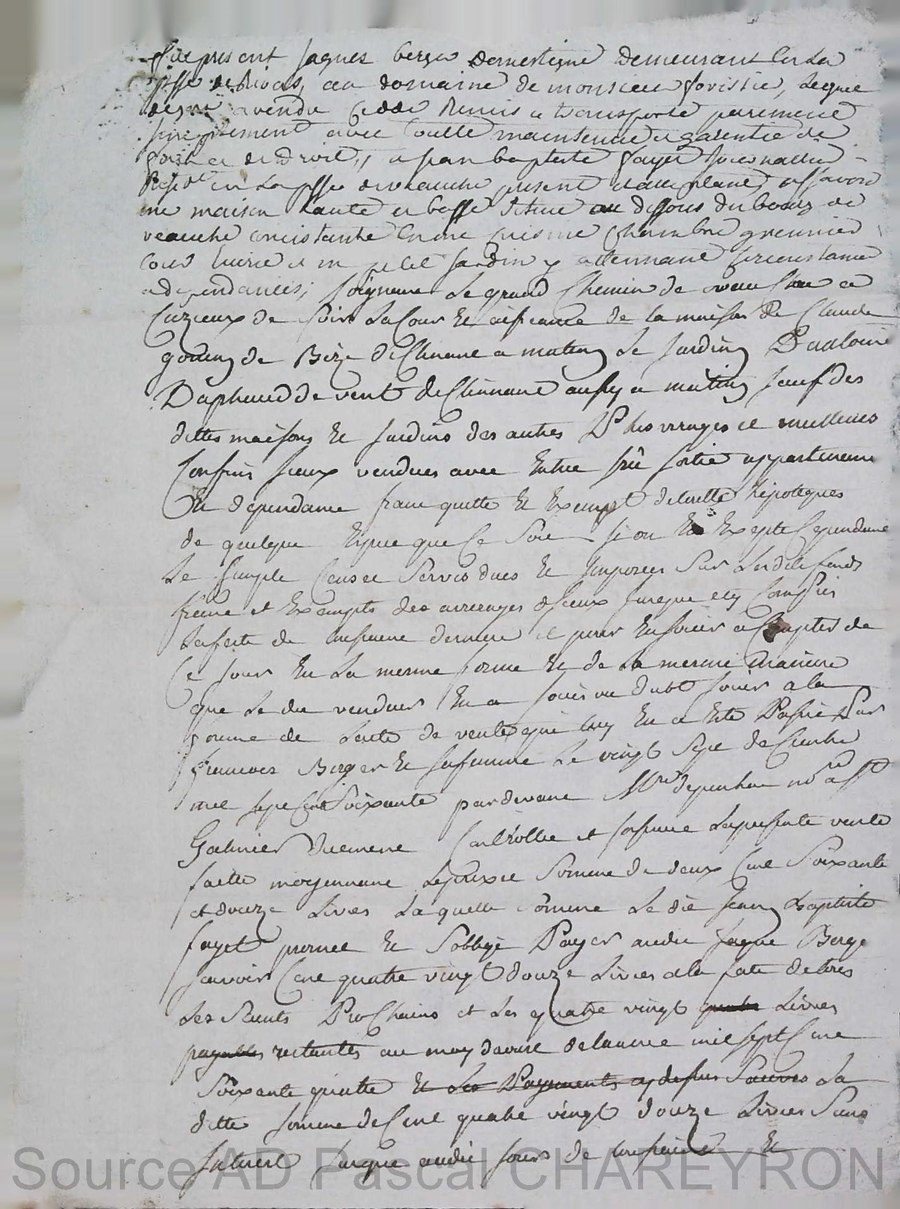 present Jaques berger domestique demeurant en la
psse de Rivas, au domaine de monsieur forissie, lequel
de gré a vendu cedde Remis et transporté purement
simplement avec toutte maintenue et garentie de
fait et de droit, a jean baptiste fayet journallier
en la psse de veauche present et acceptant, assavoir
une maison haute et basse situee au dessous du bourg de
veauche consistante en une cuisine chambre grennier
cour et un petit jardin y attennant circonstance
et dependances, joignant Le grand Chemin de veauche a
Cuzieux de soir La Cour et de la maison de Claude
gonin de Bize declinant a matin Le Jardin Dantoine
Daphaud de vent declinant aussy a matin sauf des
dittes maison et Jardins des autres Plus vrayes et meilleures
Confins Iceux vendues avec Entre sortie appartenance
Et dependance franc quitte Et Exempt de toutte hipoteques
de quelque Espece que Ce Soit si on En Excepte Cependant
Le simple Censet Servis dues Et Imposees Sur Lesdits fonds
franc et Exempts des arrerages d'Iceux Jusque Compris
La feste de derniere et pour En Jouir a Compter de
Ce Jour En La mesme forme Et de La mesme maniere
que Le dit vendeur En a Joui ou dubt Jouir a la
forme de Lacte de vente qui luy En a Eté Passé Par
francois Berger Et sa femme Le vingt Sept decembre
mil sept Cent Soixante pardevant Mre nore a St
Galmier duement Controllé et La presente vente
faitte moyennant Le prix et Somme de deux Cent Soixante
et douze Livres Laquelle somme Le dit Jean Baptiste
fayet promet Et Soblige Payer audit Jaque Berger
scavoir Cent quatre vingt douze Livres a la fete de tous
Les Saints Prochains et Les quatre vingt Livres
payables restantes au moy davril de lannee mil sept Cent
Soixante quatre Et Les Payements cy dessus La
ditte somme de Cent quatre vingt douze Livres Sans
Interet Jusque audit Jour de toussaint Et
Source AD Pascal CHAREYRON